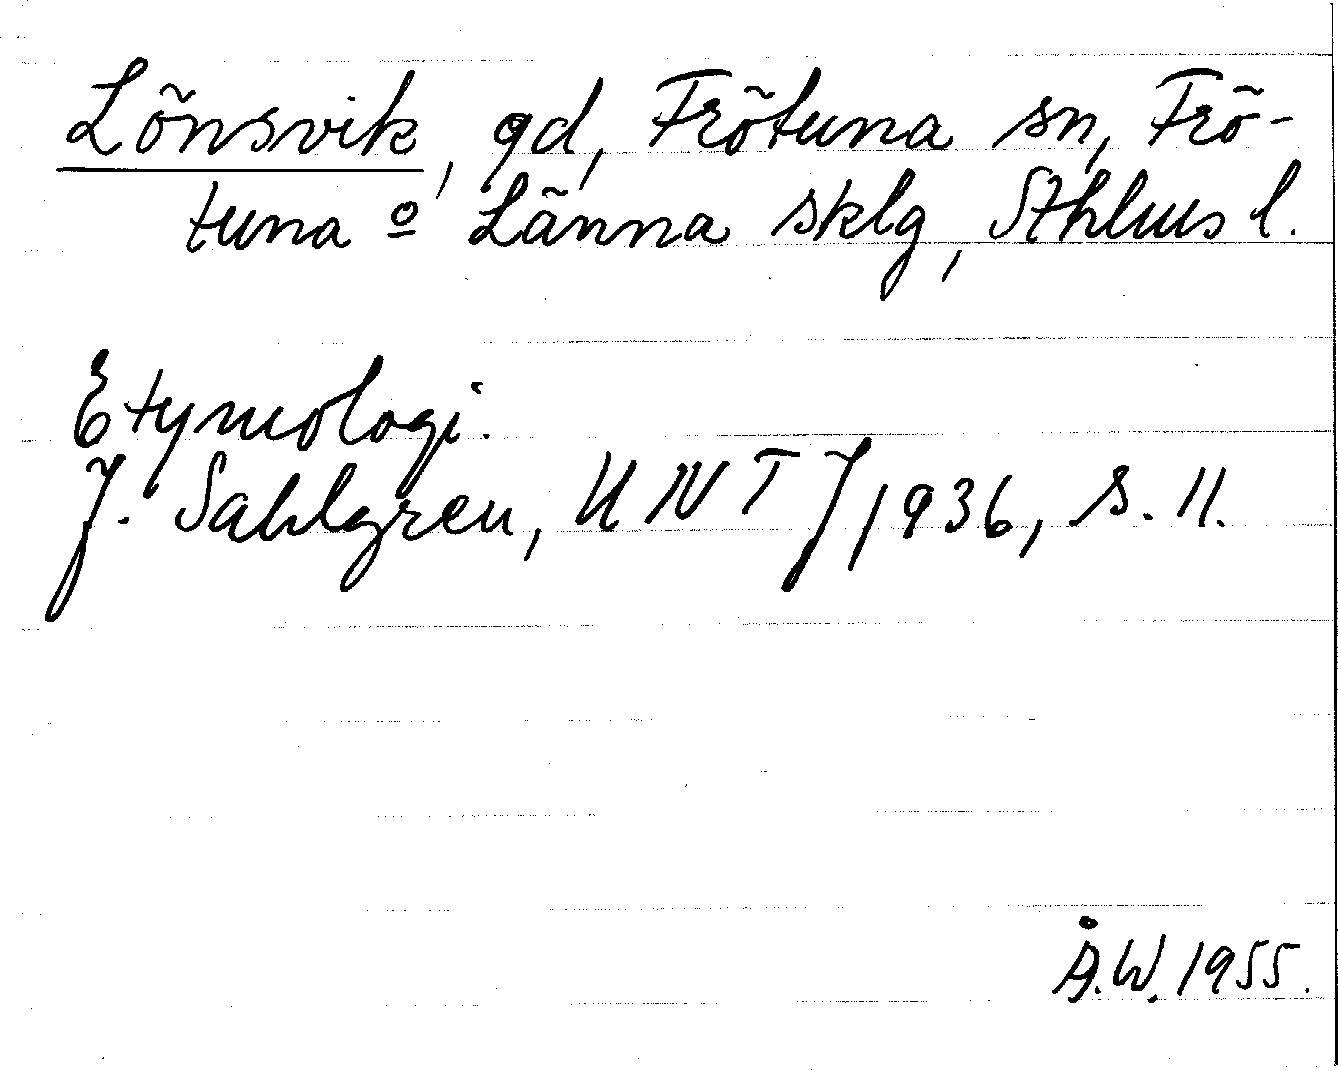 Lönsvik, gd, Frötuna sn, Frö-
tuna o Länna sklg, Sthlms l.
Etymologi.
J. Sahlgren, UNT J 1936, s. 11.
Å.W. 1955.